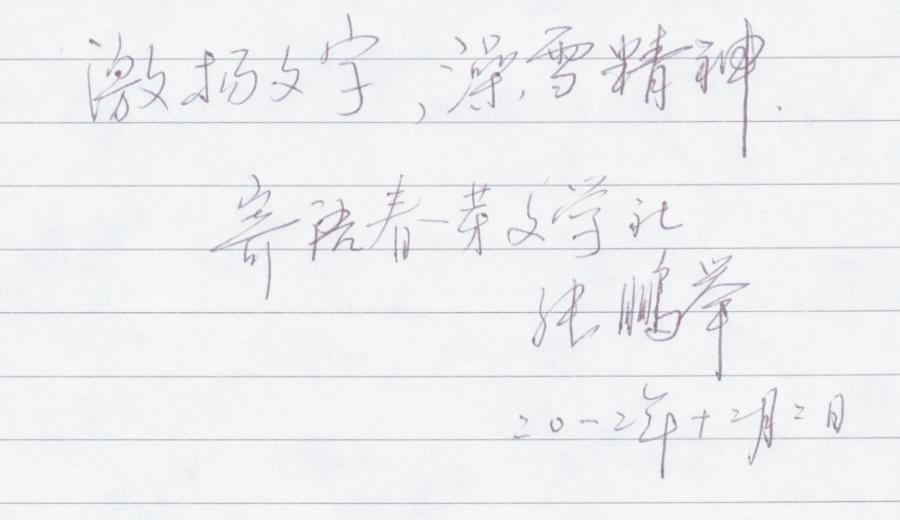 激扬文字,澡雪精神.
寄语春芽文学社
张鹏举
二0一二年十二月二日